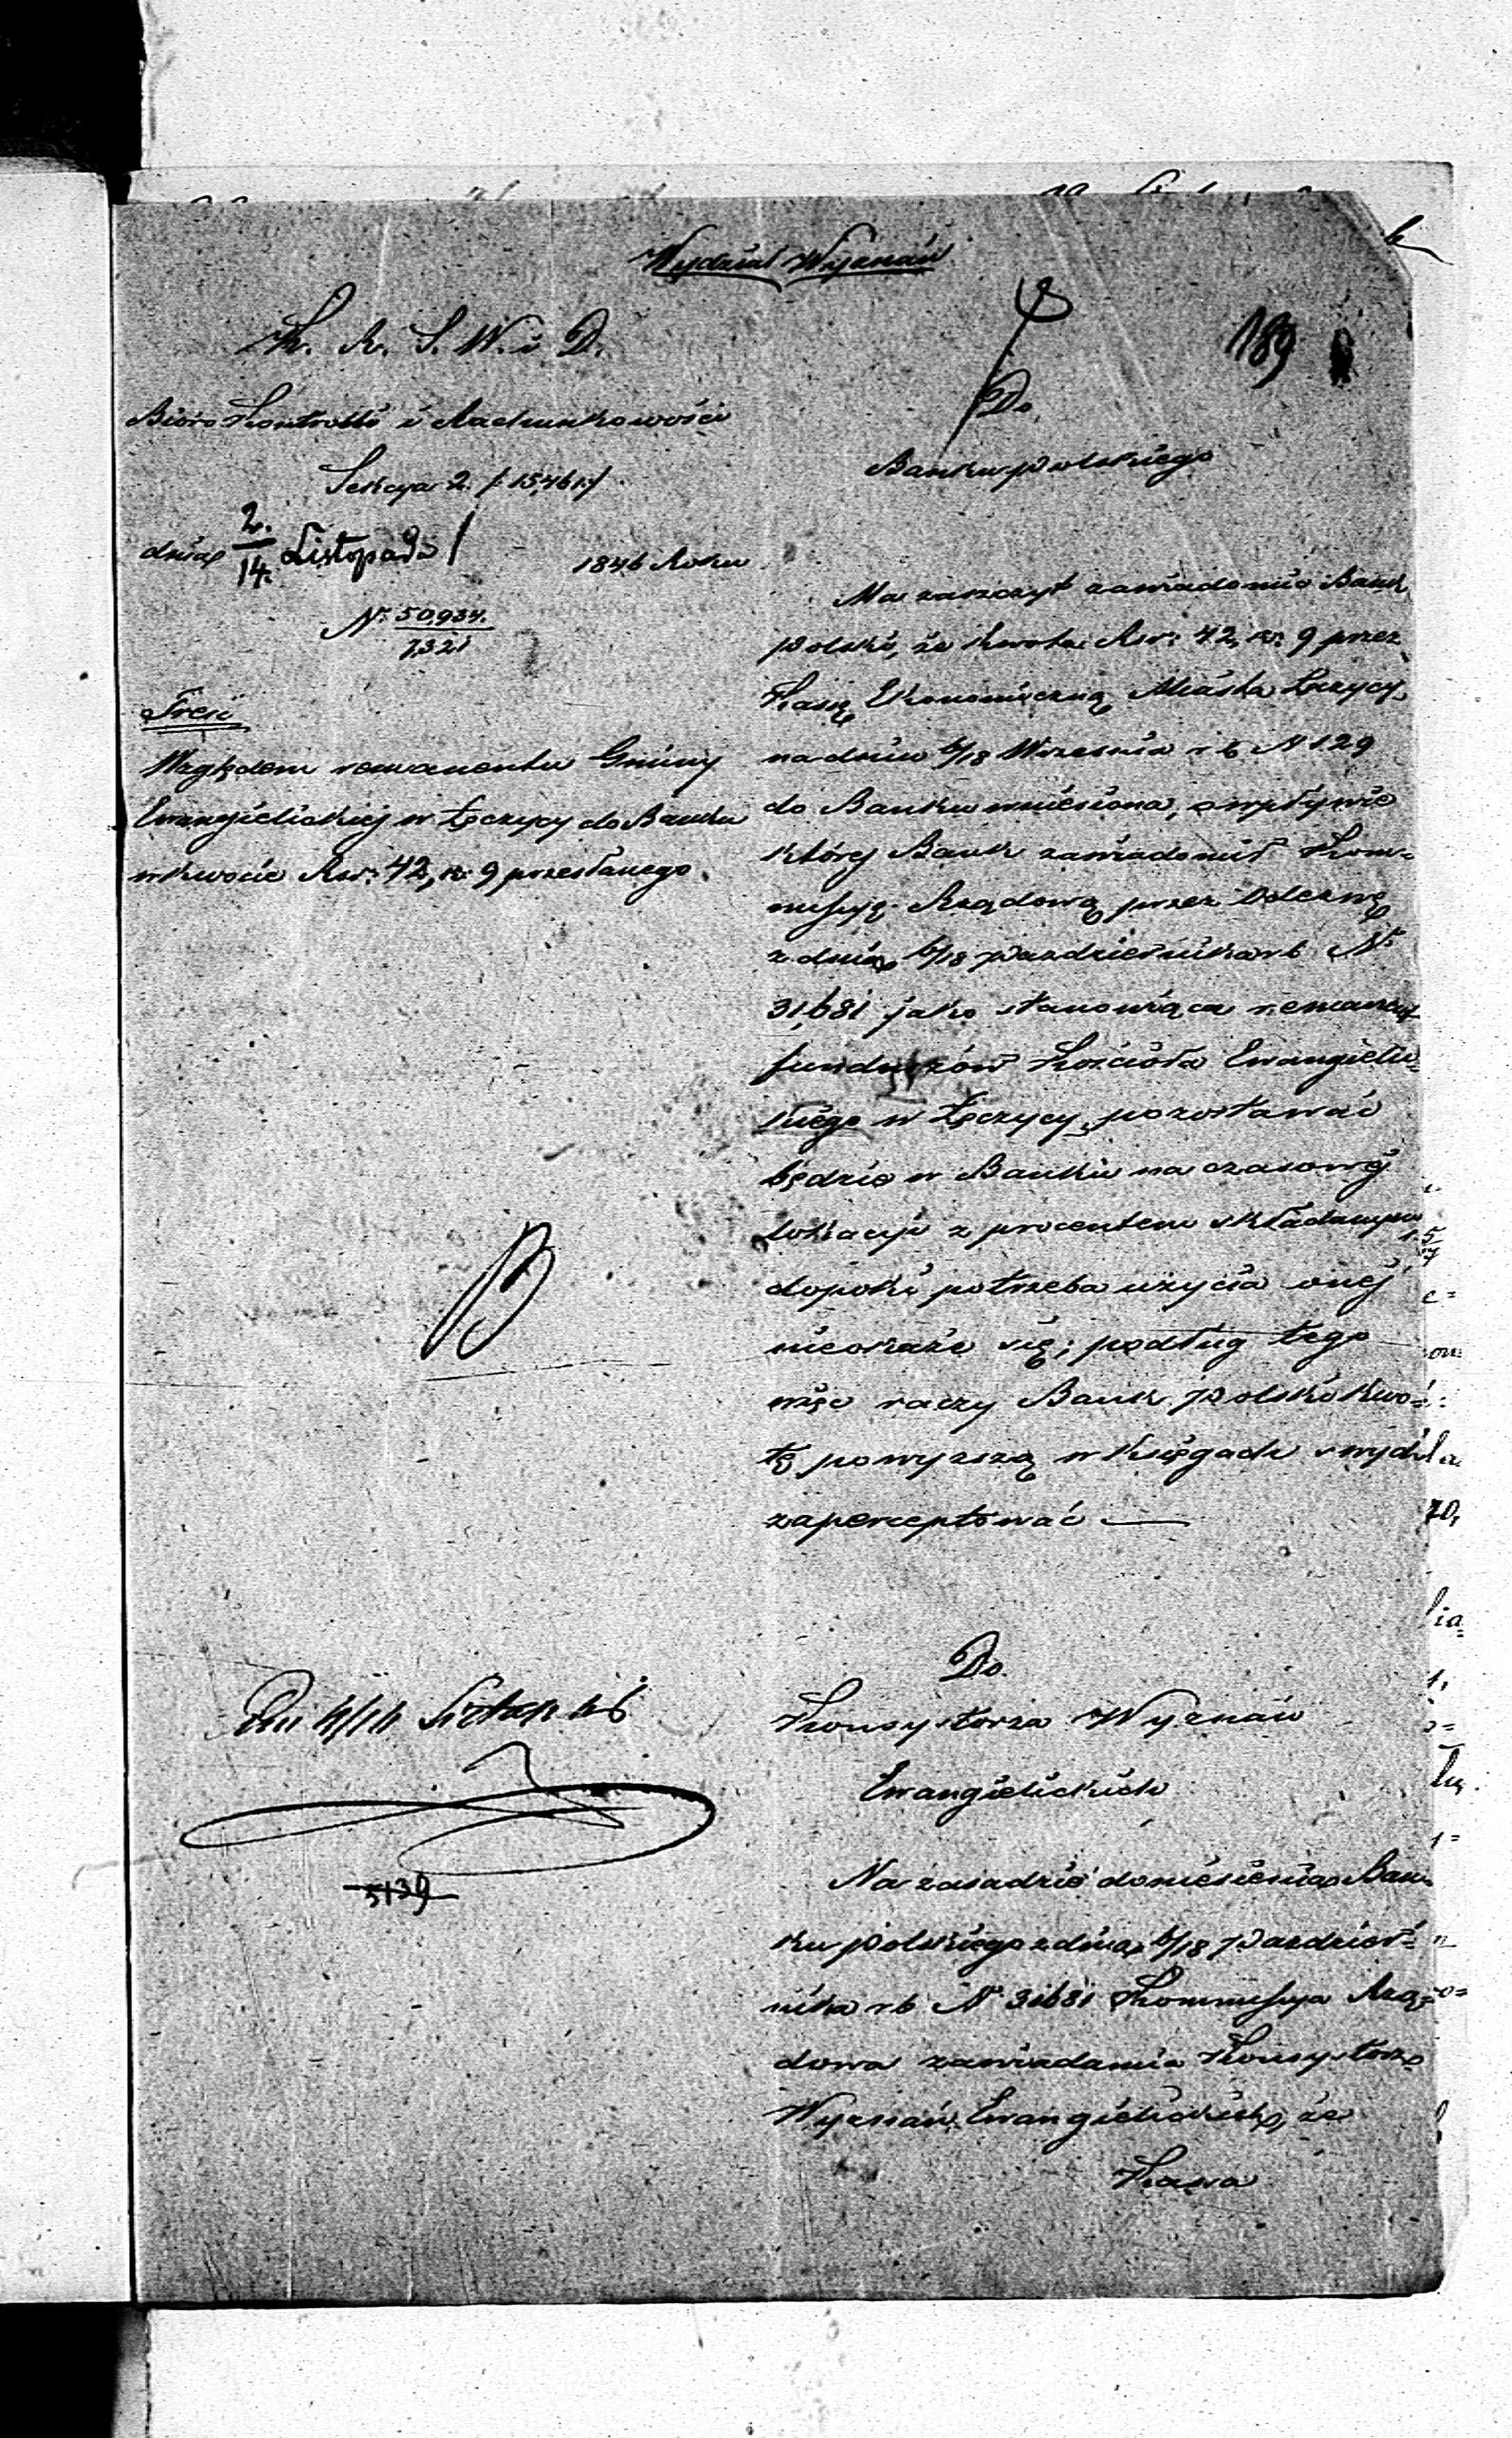 Wydział Wyznań
189
K. R. S. W. i D.
Bióro Kontrolli i Rachunkowości
Sekcya 2. /:15,461:/
dnia 2./14. Listopada 1846 Roku
N° 50,934./7321
Treść
Względem remanentu Gminy
Ewangielickiej w Łęczycy do Banku
w kwocie Rsr: 42, k: 9 przesłanego.
Do
Banku Polskiego
Ma zaszczyt zawiadomić Bank
Polski, że kwota Rsr: 42, k: 9 przez
Kassę Ekonomiczną Miasta Łęczycy
na dniu 6/18 Września r b N 129
do Banku wniesiona, o wpływie
której Bank zawiadomił Kom=
missyę Rządową przez Odezwę
z dnia 6/18 Października r b N°
31,681 jako stanowiąca remanent
funduszów Kościoła Ewangielic=
kiego w Łęczycy, pozostawać
będzie w Banku na czasowej
lokacyi z procentem składanym
dopóki potrzeba użycia onej
nieokaże się; podług tego
więc raczy Bank Polski kwo=
tę powyższą w Księgach swych
zaperceptować —
Do
Konsystorza Wyznań
Ewangielickich
Na zasadzie doniesienia Ban=
ku Polskiego z dnia 6/18 Paździer=
nika r b N° 31681 Kommissya Rzą=
dowa zawiadamia Konsystorz
Wyznań Ewangielickich, że
Kassa
5139